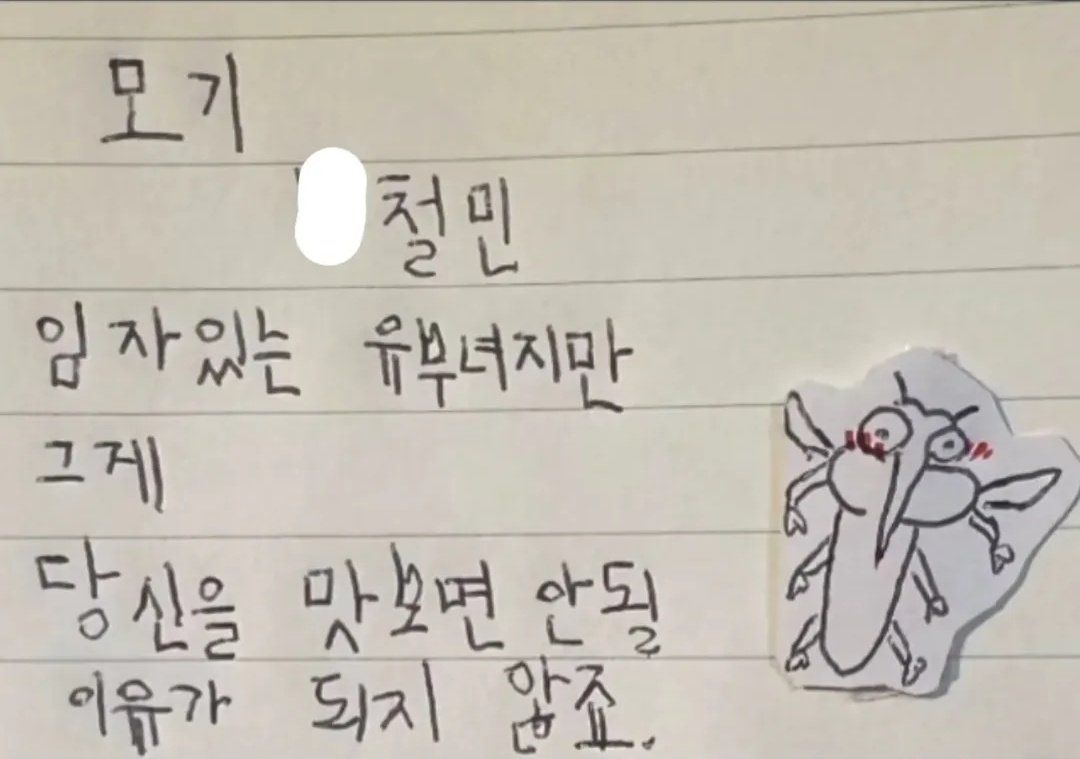 모기
철민
임자있는 유부녀지만
그제
당신을 맛보면 안될
이유가 되지 않죠.